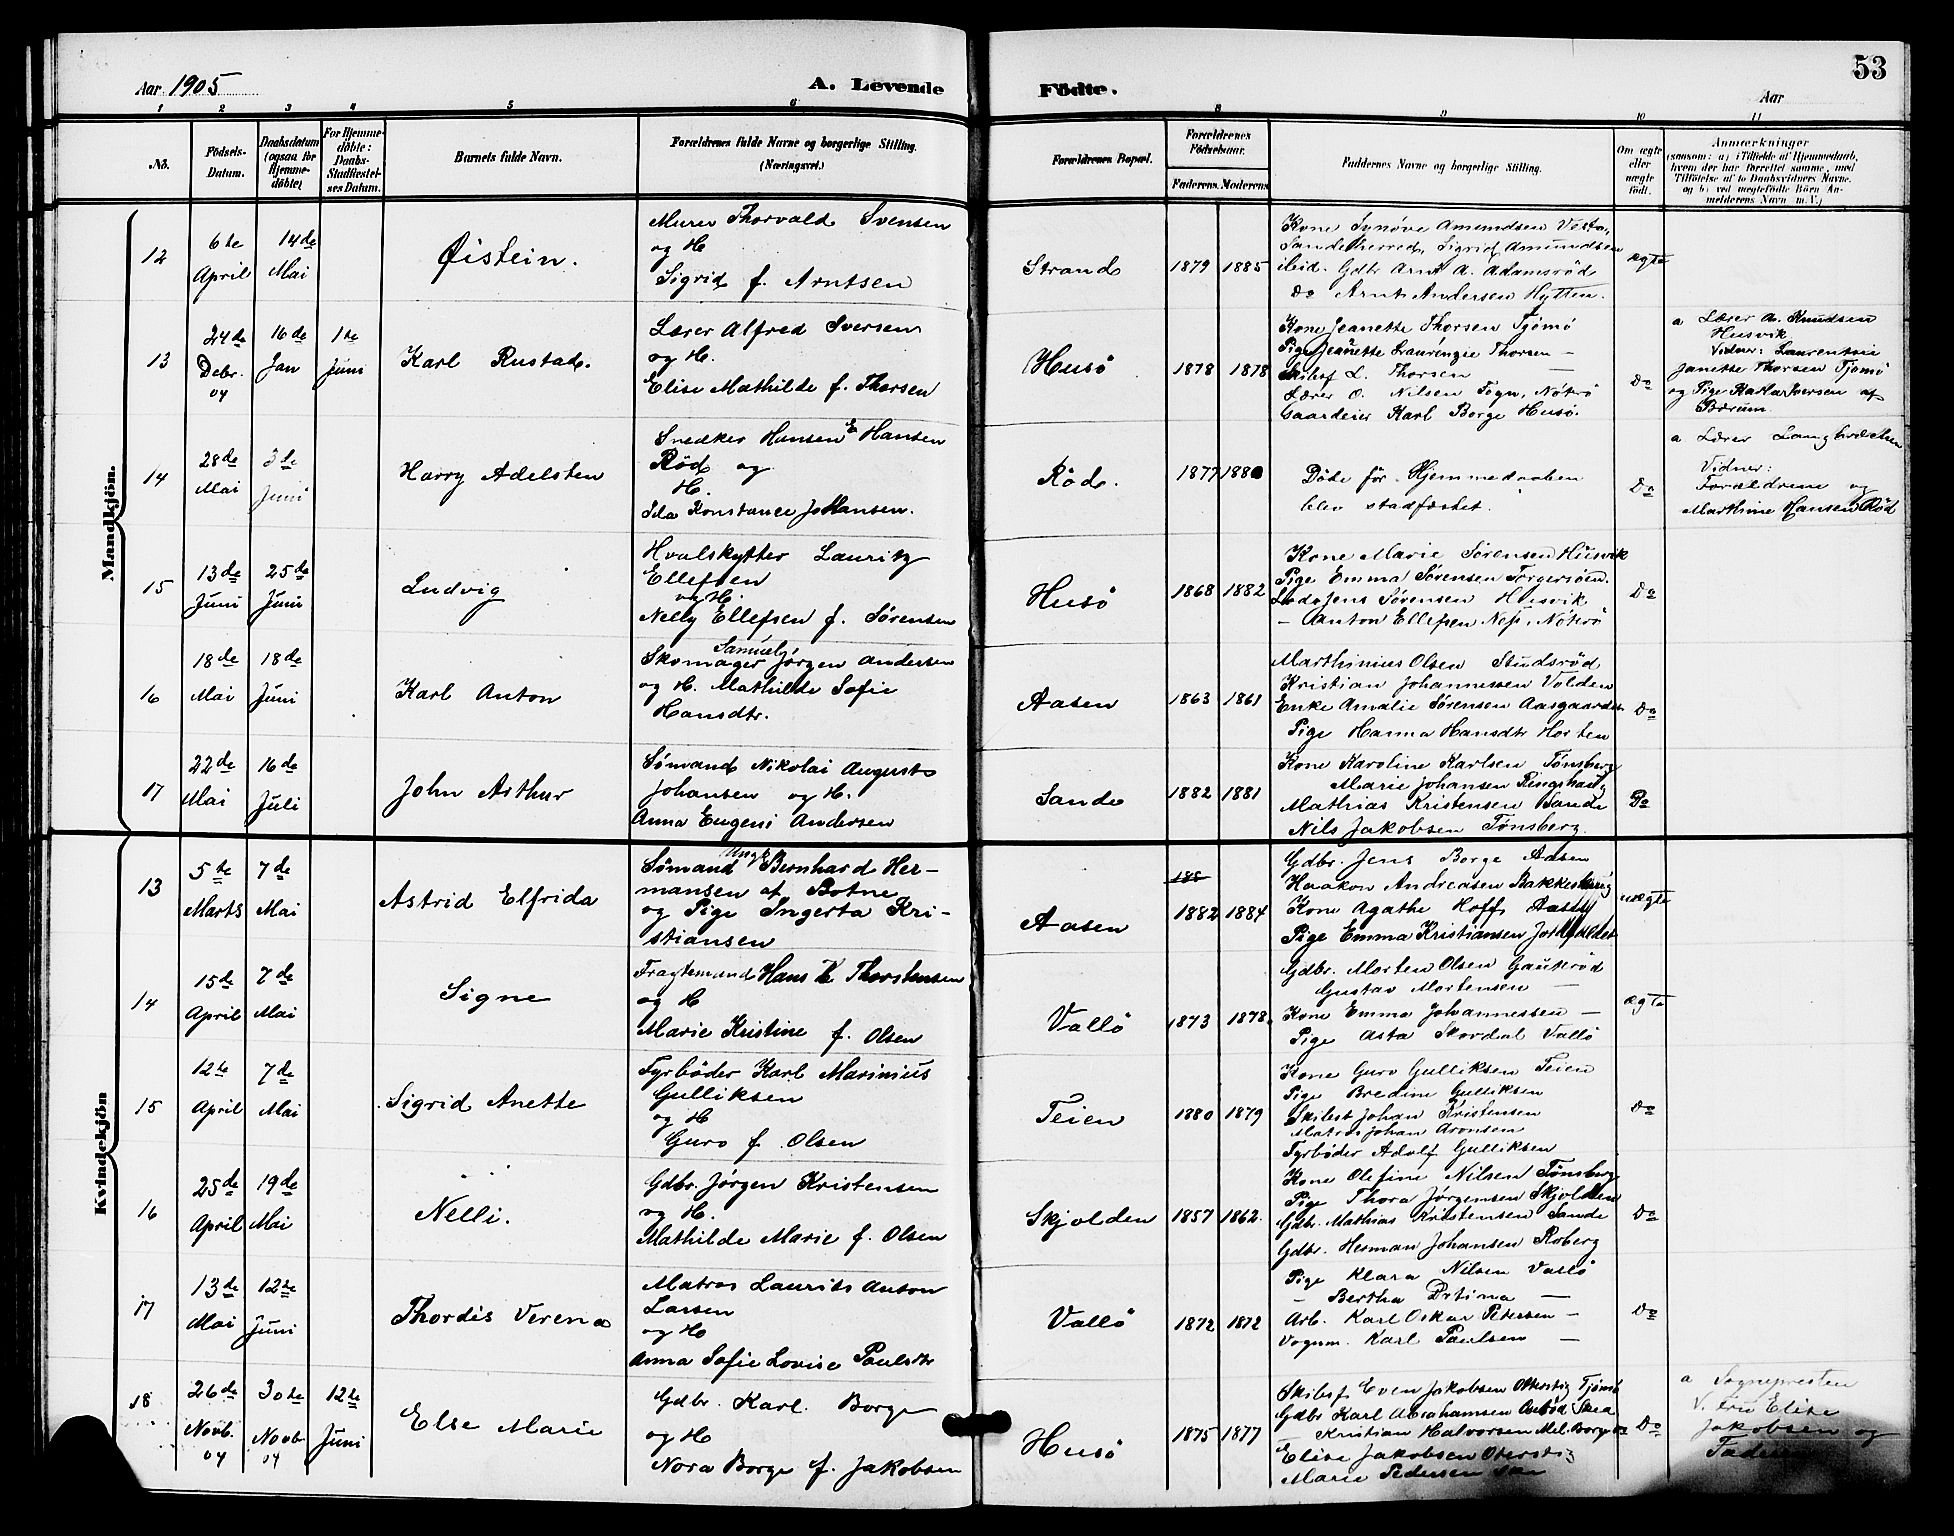 53
Aar 1905
A. Levende
Födte.
Aar
1 2 3 4 5 6 8 9 10 11
No.
Födsels-Datum.
Daabsdatum (ogsaa for Hjemme-döbte)
For Hjemme-döbte: Daabs-Stadfæstel-ses Datum.
Barnets fulde Navn.
Forældrenes fulde Navne og borgerlige Stilling.
(Næringsvei.)
Forældrenes Bopæl.
Forældrenes Födselsaar.
Faderens. Moderens.
Faddernes Navne og borgerlige Stilling.
Om ægte eller uægte födt.
Anmærkninger
(saasom: a) i Tilfælde af Hjemmedaab,
hvem der har forrettet samme, med
Tilföielse af to Daabsvidners Navne.
og b) ved uægtefödte Börn An-
melderens Navn m.V.)
Mandkjön.
12
6te April
14de Mai
Øistein.
Murer Thorvald Svensen
og H
Sigrid f. Arntsen
Strand
1879 1885
Kone Synøve Amundsen
Sandeherred, Sigrid Amundsen
ibid. Gdbr Arnt A. Adamsrød
Do Arnt Andersen Hytten.
ægte
13
24de Debr. 04
16de Jan
1te Juni
Karl Rustad.
Lærer Alfred Iversen
og H.
Elise Mathilde f. Thorsen
Husö
1878 1878
Kone Jeanette Thorsen Tjømø
Pige Jeanette Laurenzie Thorsen —
Skibsf L. Thorsen —
Lærer O. Nilsen Nøterø
Gaardeier Karl Borge Husö.
Do
a Lærer A. Knudsen
Husvik
Vidner: Laurentsie
Janette Thorsen Tjømø
og Pige Karla Iversen af
Bærum.
14
28de Mai
3te Juni
Harry Adelsten
Snedker Hansen E Hansen
Röd og
H.
Ida Konstance Johansen.
Röd.
1877 1880
Døde før Hjemmedaaben
blev stadfæstet.
Do
a Lærer
Vidner:
Forældrene og
Marthine Hansen Röd
15
13de Juni
25de Juni
Ludvig
Hvalskytter Lauritz
Ellefsen
og H.
Nelly Ellefsen f. Sørensen
Husö
1868 1882
Kone Marie Sørensen Husvik
Pige Emma Sørensen
Lods Jens Sørensen Husvik
— Anton Ellefsen Nes, Nøterø
Do
16
18de Mai
18de Juni
Karl Anton
Samuel
Skomager Jørgen Andersen
og H. Mathilde Sofie
Hansdtr.
Aasen
1863 1861
Marthinius Olsen Studsrød
Kristian Johannessen Volden
Enke Amalie Sørensen
Pige Hanna Hansdtr Horten
Do
17
22de Mai
16de Juli
John Arthur
Sömand Nikolai August
Johansen og H.
Anna Eugeni Andersen
Sande
1882 1881
Kone Karoline Karlsen Tønsberg
Marie Johansen Ringshaug
Mathias Kristensen Sande
Nils Jakobsen Tønsberg.
Do
Kvindekjön
13
5te Marts
7de Mai
Astrid Elfrida
Ungk
Sömand Bernhard Her-
mansen af Botne
og Pige Ingerta Kri-
stiansen
Aasen
188
1882 1884
Gdbr. Jens Borge Aasen
Haakon Andreasen
Kone Agathe Hoff,
Pige Emma Kristiansen
uægte
14
15de April
7de Mai
Signe
Fragtemand Hans K Thorstensen
og H
Marie Kristine f. Olsen
Vallö
1873 1878.
Gdbr. Morten Olsen Gauterød
Gustav Mortensen —
Kone Emma Johannessen —
Pige Asta Skordal Vallö
ægte
15
12te April
7de Mai
Sigrid Anette
Fyrbøder Karl Marinius
Gulliksen
og H
Guro f. Olsen
Teien
1880 1879
Kone Guro Gulliksen Teien
Pige Bredine Gulliksen
Skibst Johan Kristensen
Matros Johan Aronsen
Fyrbøder Adolf Gulliksen
Do
16
25de April
19de Mai
Nelli.
Gdbr. Jörgen Kristensen
og H.
Mathilde Marie f. Olsen
Skjolden
1857 1862.
Kone Olefine Nilsen Tønsberg
Pige Thora Jørgensen Skjolden
Gdbr. Mathias Kristensen Sande
Gdbr. Herman Johansen Roberg
Do
17
13de Mai
12te Juni
Thordis Verena
Matros Laurits Anton
Larsen
og H
Anna Sofie Lovise Paulsdtr
Vallö
1872 1872
Pige Klara Nilsen Vallö
— Bertha —
Arb. Karl Oskar Petersen —
Vognm. Karl Paulsen —
Do
18
26de Novb. 04
30te Novb 04
12te Juni
Else Marie
Gdbr. Karl Borge
og H
Nora Borge f. Jakobsen
Husö
1875 1877
Skibsf Even Jakobsen Tjømø
Gdbr Karl Abrahamsen
— Kristian Halvorsen Mel. Borge
Elise Jakobsen
Marie Pedersen
Do
a Sognepresten
V. Fru Elise
Jakobsen og
Faderen